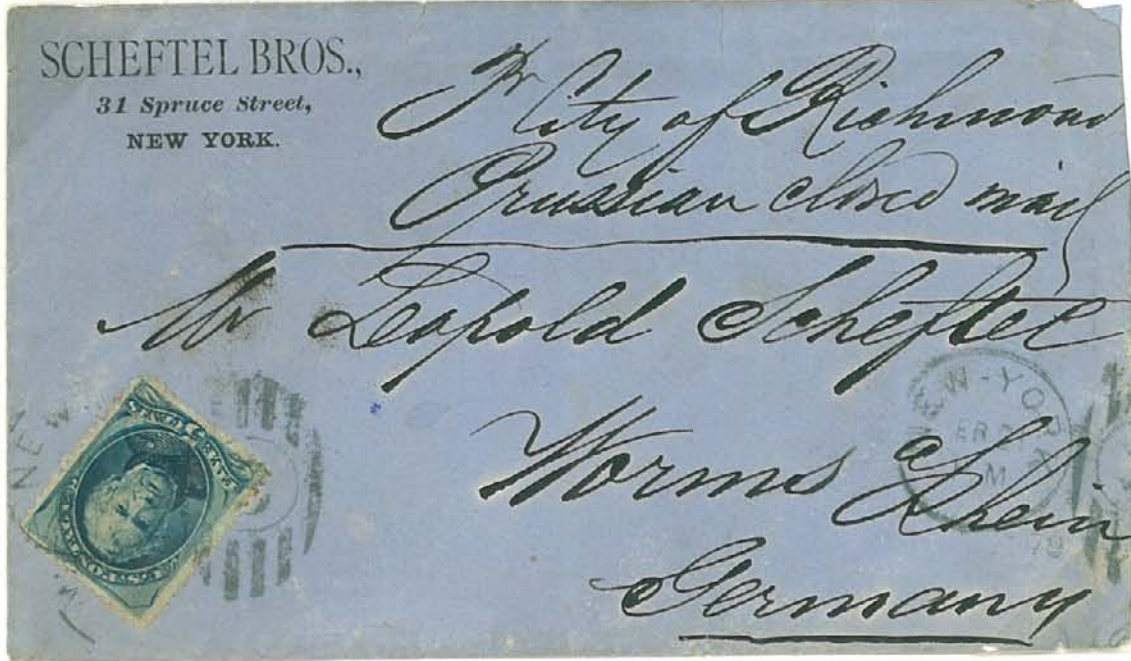 SCHEFTEL BROS.,
31 Spruce Street,
NEW YORK.
Pr City of Richmond
Prussian closed mail
Mr Leopold Scheftel
Worms a/Rhein
Germany
NEW-YORK
M
79
NEW